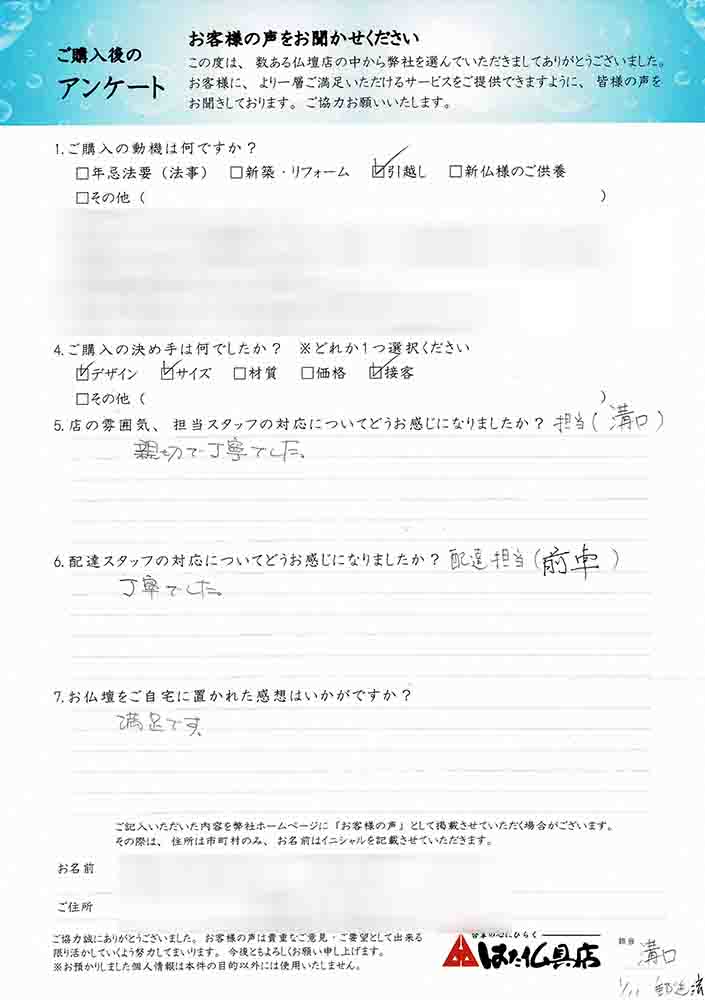 お客様の声をお聞かせください
ご購入後の
アンケート
この度は、数ある仏壇店の中から弊社を選んでいただきましてありがとうございました。
お客様に、より一層ご満足いただけるサービスをご提供できますように、皆様の声を
お聞きしております。ご協力お願いいたします。
1.ご購入の動機は何ですか？
□年忌法要（法事） □新築・リフォーム ☑引越し □新仏様のご供養
□その他（ ）
4.ご購入の決め手は何でしたか？ ※どれか1つ選択ください
☑デザイン ☑サイズ □材質 □価格 ☑接客
□その他（ ）
5.店の雰囲気、担当スタッフの対応についてどうお感じになりましたか？ 担当(溝口)
親切で丁寧でした。
6.配達スタッフの対応についてどうお感じになりましたか？ 配達担当(前中)
丁寧でした。
7.お仏壇をご自宅に置かれた感想はいかがですか？
満足です。
ご記入いただいた内容を弊社ホームページに「お客様の声」として掲載させていただく場合がございます。
その際は、住所は市町村のみ、お名前はイニシャルを記載させていただきます。
お名前
ご住所
ご協力誠にありがとうございました。お客様の声は貴重なご意見・ご要望として出来る
限り活かしていくよう努力してまいります。今後ともよろしくお願い申し上げます。
※お預かりしました個人情報は本件の目的以外には使用いたしません。
はた仏具店
溝口
1/11 郵送済